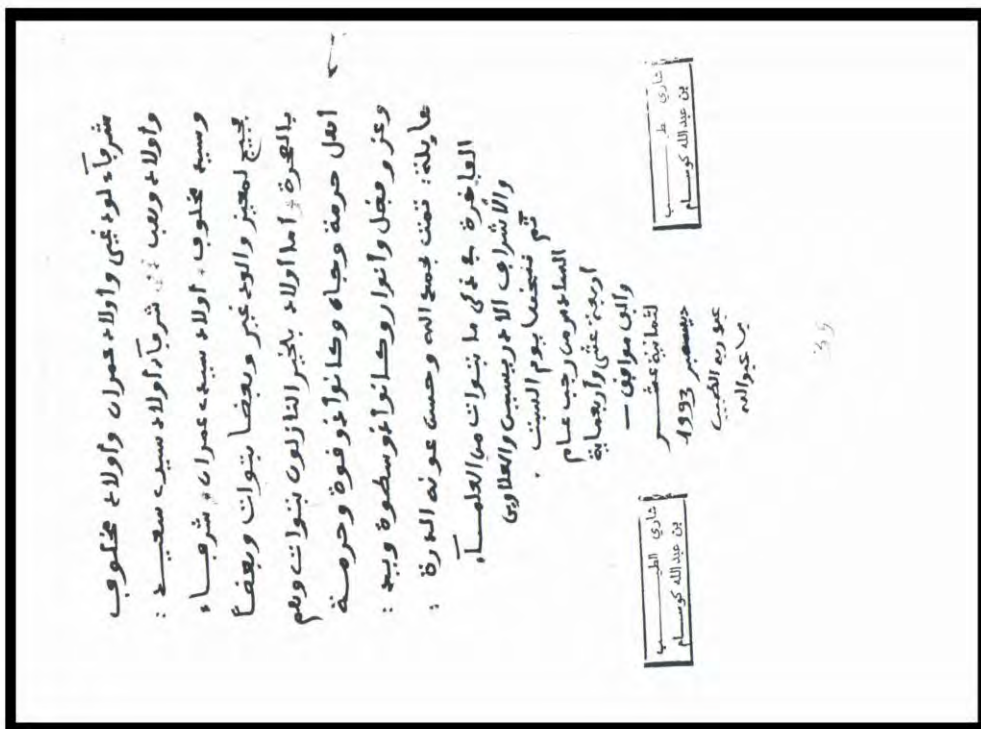 شرفاء لودغيى وأولاد عمران وأولاد مخلوف
وأولاد وهب شرفاء أولاد سيد سعيد :
وسيد مخلوف . أولاد سيد عمران . شرفاء
لمعيز والودغير وبعضا بتوات وبعضا
أما أولاد بالخير النازلون بتوات وهم
أهل حرمة وجاه وكانوا ذو قوة وحرمة
وعز وأنوار وكانوا ذو سطوة ويد :
تمت بحمد الله وحسن عونه الدرة :
الفاخرة في ذكر ما بتوات من العلماء
والأشراف الادريسيين والعلاويين
تم نسخها يوم السبت .
السادس من رجب عام
أربعة عشر وأربعماية
والف موافق –
لثمانية عشر
ديسمبر 1993
عبد ربه الطيب
بن عبد الله
شاري الطيب
بن عبد الله كوسام
شاري الطيب
بن عبد الله كوسام